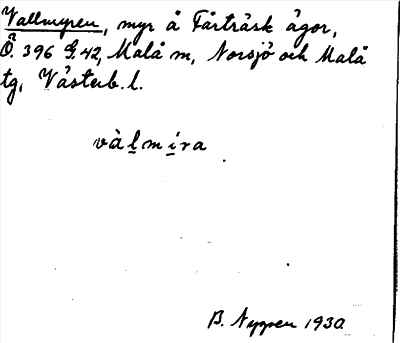 Vallmyren, myr å Fårträsk ägor,
Ö. 396 G. 42, Malå m, Norsjö och Malå
tg, Västerb. l.
vàlmíra
B. Nygren 1930